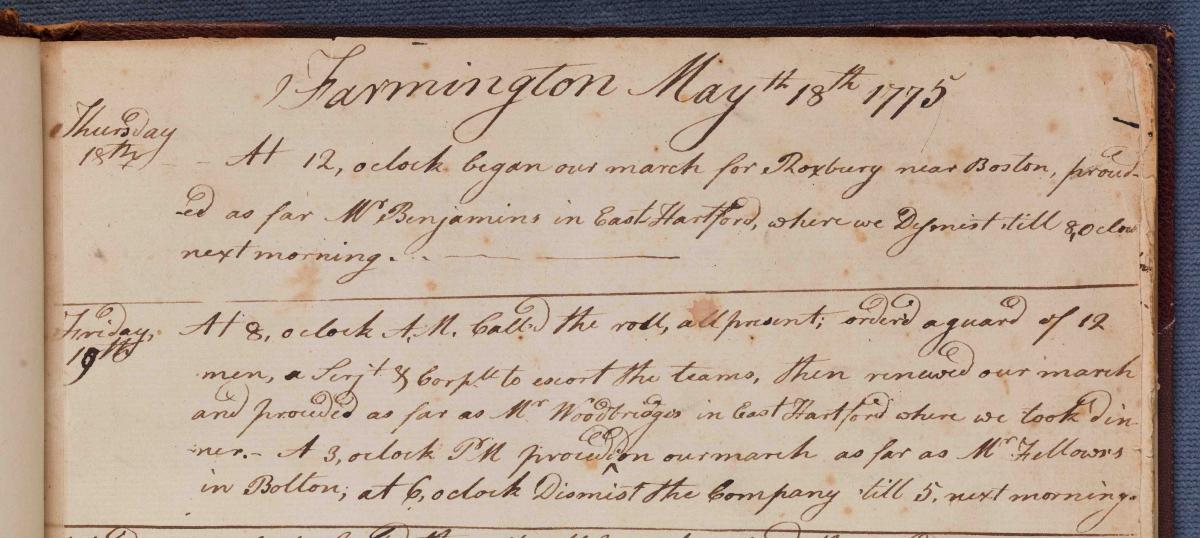 Farmington May th 18th 1775
Thursday
18th
At 12, oclock began our march for Roxbury near Boston, proced-
ed as far Mr Benjamins in East Hartford, where we Dismist till 8, oclock
next morning.
Friday,
19th
At 8, oclock A,M. Called the roll, all present; orderd a guard of 12
men, a Serjt & Corpll to escort the teams, then renewed our march
and proceded as far as Mr Woodbridges in East Hartford where we took din
ner.- A 3, oclock PM proced on our march as far as Mr Fellows-
in Bolton; at 6, oclock Dismist the Company till 5, next morning.